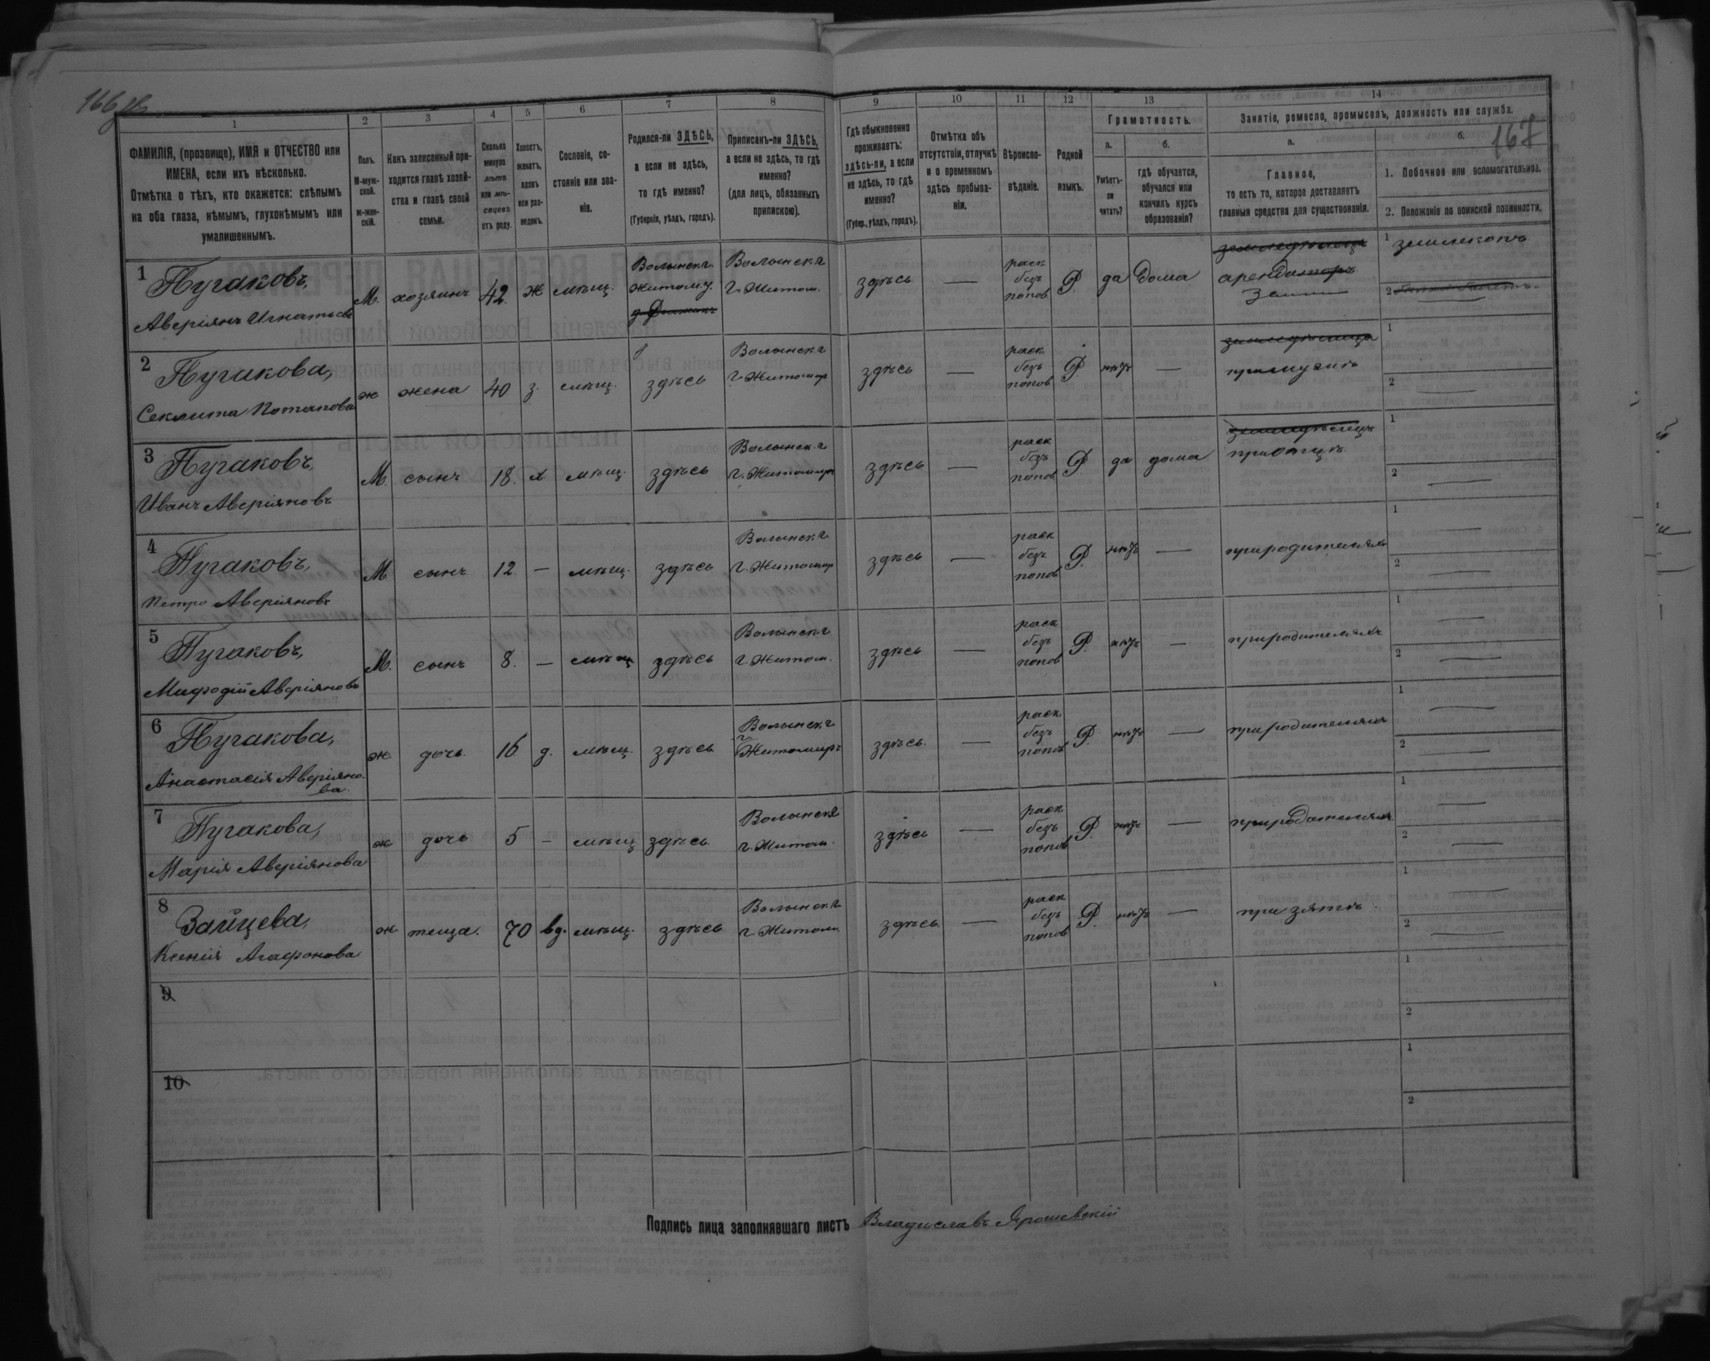 167
1 2 3 4 5 6 7 8 9 10 11 12 13 14
ФАМИЛІЯ, (прозвище), ИМЯ и ОТЧЕСТВО или ИМЕНА, если ихъ нѣсколько.
Отмѣтка о тѣхъ, кто окажется: слѣпымъ на оба глаза, нѣмымъ, глухонѣмымъ или умалишеннымъ.
Полъ. М-мужской. ж-женскій.
Какъ записанный приходится главѣ хозяйства и главѣ своей семьи.
Сколько минуло лѣтъ или мѣсяцевъ отъ роду.
Холостъ, женатъ, вдовъ или разведенъ.
Сословіе, состояніе или званіе.
Родился-ли ЗДѢСЬ, а если не здѣсь, то гдѣ именно? (Губернія, уѣздъ, городъ).
Приписанъ-ли ЗДѢСЬ, а если не здѣсь, то гдѣ именно? (для лицъ, обязанныхъ припискою).
Гдѣ обыкновенно проживаетъ: здѣсь-ли, а если не здѣсь, то гдѣ именно? (Губер., уѣздъ, городъ).
Отмѣтка объ отсутствіи, отлучкѣ и о временномъ здѣсь пребываніи.
Вѣроисповѣданіе.
Родной языкъ.
Грамотность.
а. Умѣетъ-ли читать?
б. гдѣ обучается, обучался или кончилъ курсъ образованія?
Занятіе, ремесло, промыселъ, должность или служба.
а. Главное, то есть то, которое доставляетъ главныя средства для существованія.
б.
1. Побочное или вспомогательное.
2. Положеніе по воинской повинности.
1 Пугаковъ, Аверіянъ Игнатьевъ М. хозяинъ 42. ж мѣщ. Волынск г. Житом. здѣсь — раск безъ попов Р. да дома арендаторъ 1 землекопъ 2
2 Пугакова, Секлита Потапова ж жена 40 з. мѣщ. здѣсь Волынск г. Житомир здѣсь — раск безъ попов Р нѣтъ — при мужѣ 1 2
3 Пугаковъ, Иванъ Аверіяновъ М сынъ 18. х мѣщ. здѣсь Волынск г. Житомир здѣсь — раск безъ попов Р да дома при отцѣ 1 2 —
4 Пугаковъ, Петро Аверіяновъ М сынъ 12 — мѣщ. здѣсь Волынск г. Житомир здѣсь — раск безъ попов Р. нѣтъ — при родителях 1 — 2 —
5 Пугаковъ, Мифодій Аверіяновъ М. сынъ 8. — мѣщ здѣсь Волынск г. Житом. здѣсь — раск безъ попов Р. нѣтъ — при родителяхъ 1 — 2 —
6 Пугакова, Анастасія Аверіянова ж дочь 16 д. мѣщ здѣсь Волынск г. Житомиръ здѣсь — раск безъ попов Р. нѣтъ — при родителях 1 — 2 —
7 Пугакова, Марія Аверіянова ж дочь 5 — мѣщ здѣсь Волынск г. Житом. здѣсь — раск безъ попов Р. нѣтъ — при родителях 1 — 2 —
8 Зайцева, Ксенія Агафонова ж теща. 70 вд. мѣщ. здѣсь Волынск г. Житом здѣсь — раск безъ попов Р. нѣтъ — при зятѣ 1 — 2 —
9 1 2
10 1 2
Подпись лица заполнявшаго листъ Владиславъ Ярошевскій